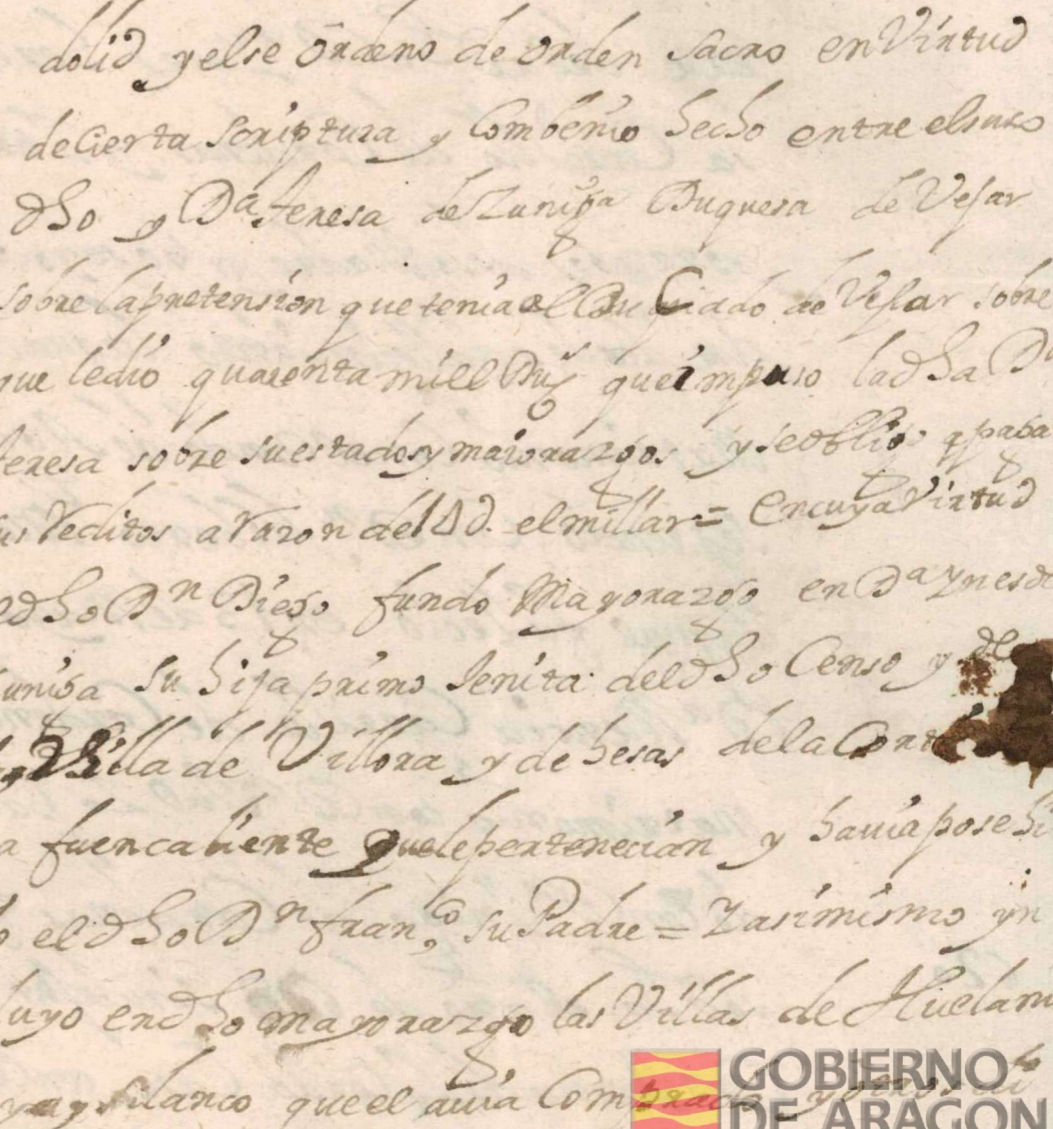 dolid y el se Ordeno de orden sacro en Virtud
de cierta scriptura y Combenio hecho entre el suso
dho y Da. teresa de Zuniga Duquesa de Vejar
sobre la pretension que tenia al Ducado de Vejar sobre
que le dio quarenta mill Dus. que impuso la dha Da
teresa sobre su estados y maiorazgos y se obligo a pagar
sus Reditos a Razon de 14 d. el millar = En cuya Virtud
el dho Dn Diego fundo Mayorazgo en Da Ynes de
Zuniga su hija primo Jenita del dho Censo y de
Villa de Villora y dehesas de la
a fuencaliente que le pertenecian y hauia posehi
do el dho Dn franco. su Padre = Y asimismo yn
cluyo en dho mayorazgo las Villas de Huelamo
y silanco que el auia Comprado y otros
GOBIERNO
DE ARAGON